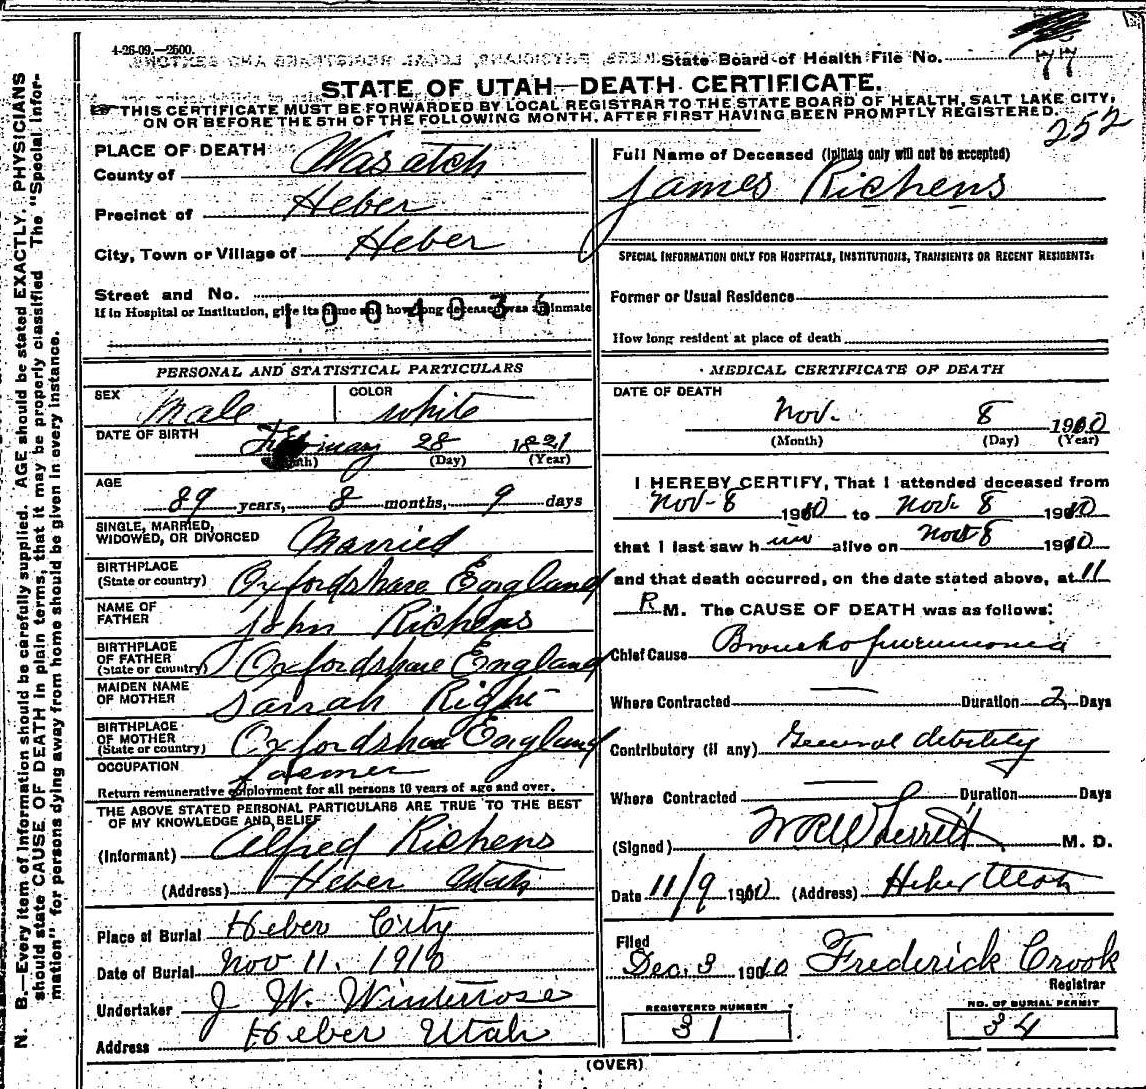 4-26-09.—2500.
State Board of Health File No. 77
STATE OF UTAH—DEATH CERTIFICATE.
THIS CERTIFICATE MUST BE FORWARDED BY LOCAL REGISTRAR TO THE STATE BOARD OF HEALTH, SALT LAKE CITY,
ON OR BEFORE THE 5TH OF THE FOLLOWING MONTH. AFTER FIRST HAVING BEEN PROMPTLY REGISTERED.
252
PLACE OF DEATH
County of Wasatch
Precinct of Heber
City, Town or Village of Heber
Street and No.
If in Hospital or Institution, give its name and how long deceased was an inmate
1004035
PERSONAL AND STATISTICAL PARTICULARS
SEX Male COLOR white
DATE OF BIRTH February 28 1821
(Month) (Day) (Year)
AGE
89 years, 8 months, 9 days
SINGLE, MARRIED,
WIDOWED, OR DIVORCED Married
BIRTHPLACE
(State or country) Oxfordshare England
NAME OF
FATHER John Richens
BIRTHPLACE
OF FATHER
(State or country) Oxfordshare England
MAIDEN NAME
OF MOTHER Sarrah
BIRTHPLACE
OF MOTHER
(State or country) Oxfordshare England
OCCUPATION farmer
Return remunerative employment for all persons 10 years of age and over.
THE ABOVE STATED PERSONAL PARTICULARS ARE TRUE TO THE BEST
OF MY KNOWLEDGE AND BELIEF
(Informant) Alfred Richens
(Address) Heber Utah
Place of Burial Heber City
Date of Burial Nov 11. 1910
Undertaker J W. Winterose
Address Heber Utah
Full Name of Deceased (Initials only will not be accepted)
James Richens
SPECIAL INFORMATION ONLY FOR HOSPITALS, INSTITUTIONS, TRANSIENTS OR RECENT RESIDENTS:
Former or Usual Residence
How long resident at place of death
MEDICAL CERTIFICATE OF DEATH
DATE OF DEATH
Nov. 8 1910
(Month) (Day) (Year)
I HEREBY CERTIFY, That I attended deceased from
Nov-8 1910 to Nov. 8 1910
that I last saw him alive on Nov 8 1910
and that death occurred, on the date stated above, at 11
P M. The CAUSE OF DEATH was as follows:
Chief Cause Broncho pneumonia
Where Contracted — Duration 2 Days
Contributory (if any) General debility
Where Contracted — Duration Days
(Signed) M. D.
Date 11/9 1910 (Address) Heber Utah
Filed
Dec. 3 1910 Frederick Crook
Registrar
REGISTERED NUMBER
31
NO. OF BURIAL PERMIT
34
(OVER)
N. B.—Every item of information should be carefully supplied. AGE should be stated EXACTLY. PHYSICIANS
should state CAUSE OF DEATH in plain terms, that it may be properly classified The "Special Infor-
mation" for persons dying away from home should be given in every instance.